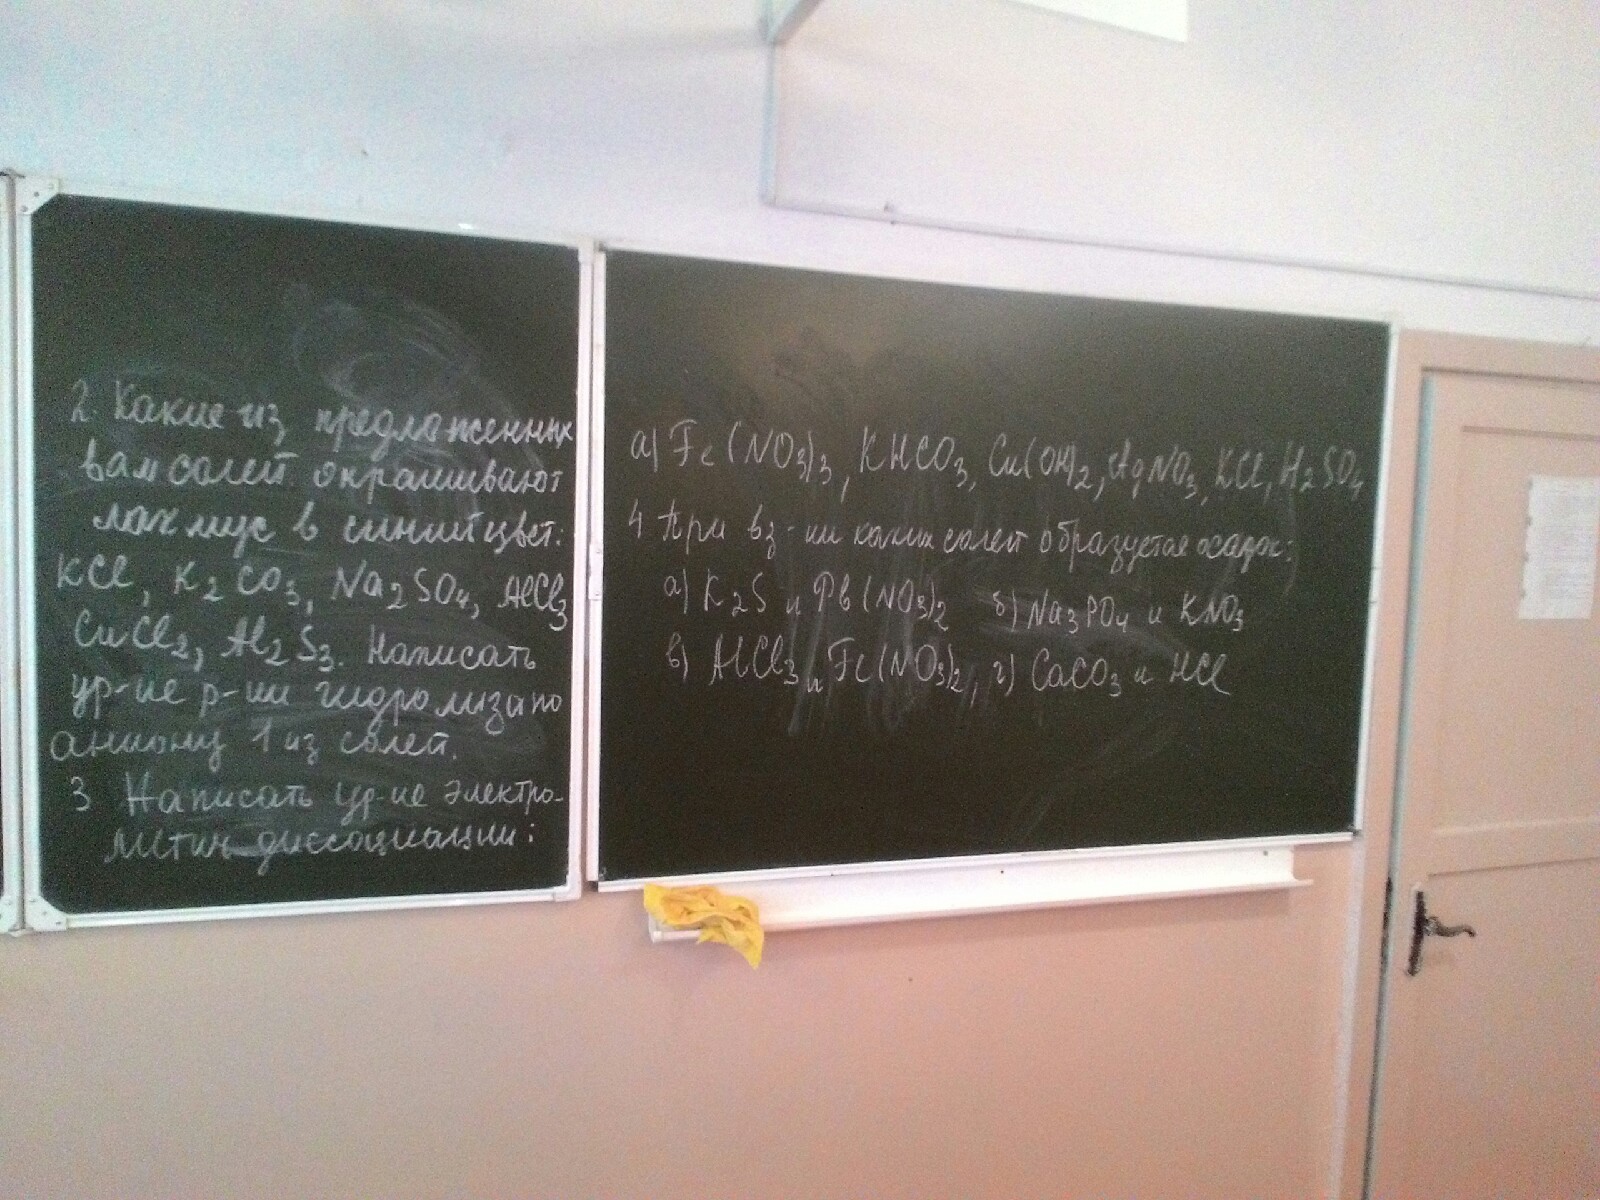 2. Какие из предложенных
вам солей окрашивают
лакмус в синий цвет:
KCl, K2CO3, Na2SO4, AlCl3
CuCl2, Al2S3. Написать
ур-ие р-ии гидролиза по
аниону 1 из солей.
3 Написать ур-ие электро-
литич диссоциации:
а) Fe(NO3)3, KHCO3, Cu(OH)2, AgNO3, KCl, H2SO4
4 При вз-ии каких солей образуется осадок:
а) K2S и Pb(NO3)2 б) Na3PO4 и KNO3
в) AlCl3 и Fe(NO3)2, г) CaCO3 и HCl